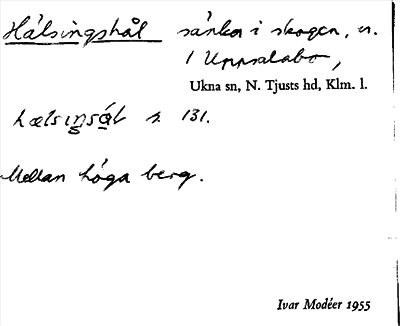 Hälsingshål sänka i skogen, n.
/ Uppsalabo,
Ukna sn, N. Tjusts hd, Klm. l.
hælsiŋsål s. 131.
Mellan höga berg.
Ivar Modéer 1955